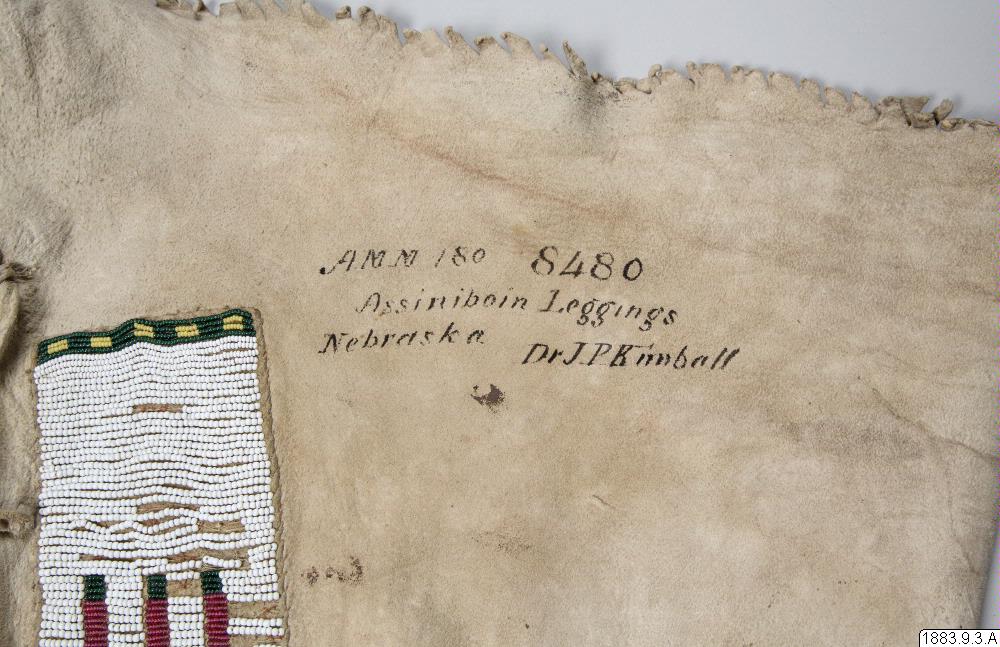 AMM 180 8480
Assiniboin Leggings
Nebraska Dr J.P. Kimball
1883.9.3.A